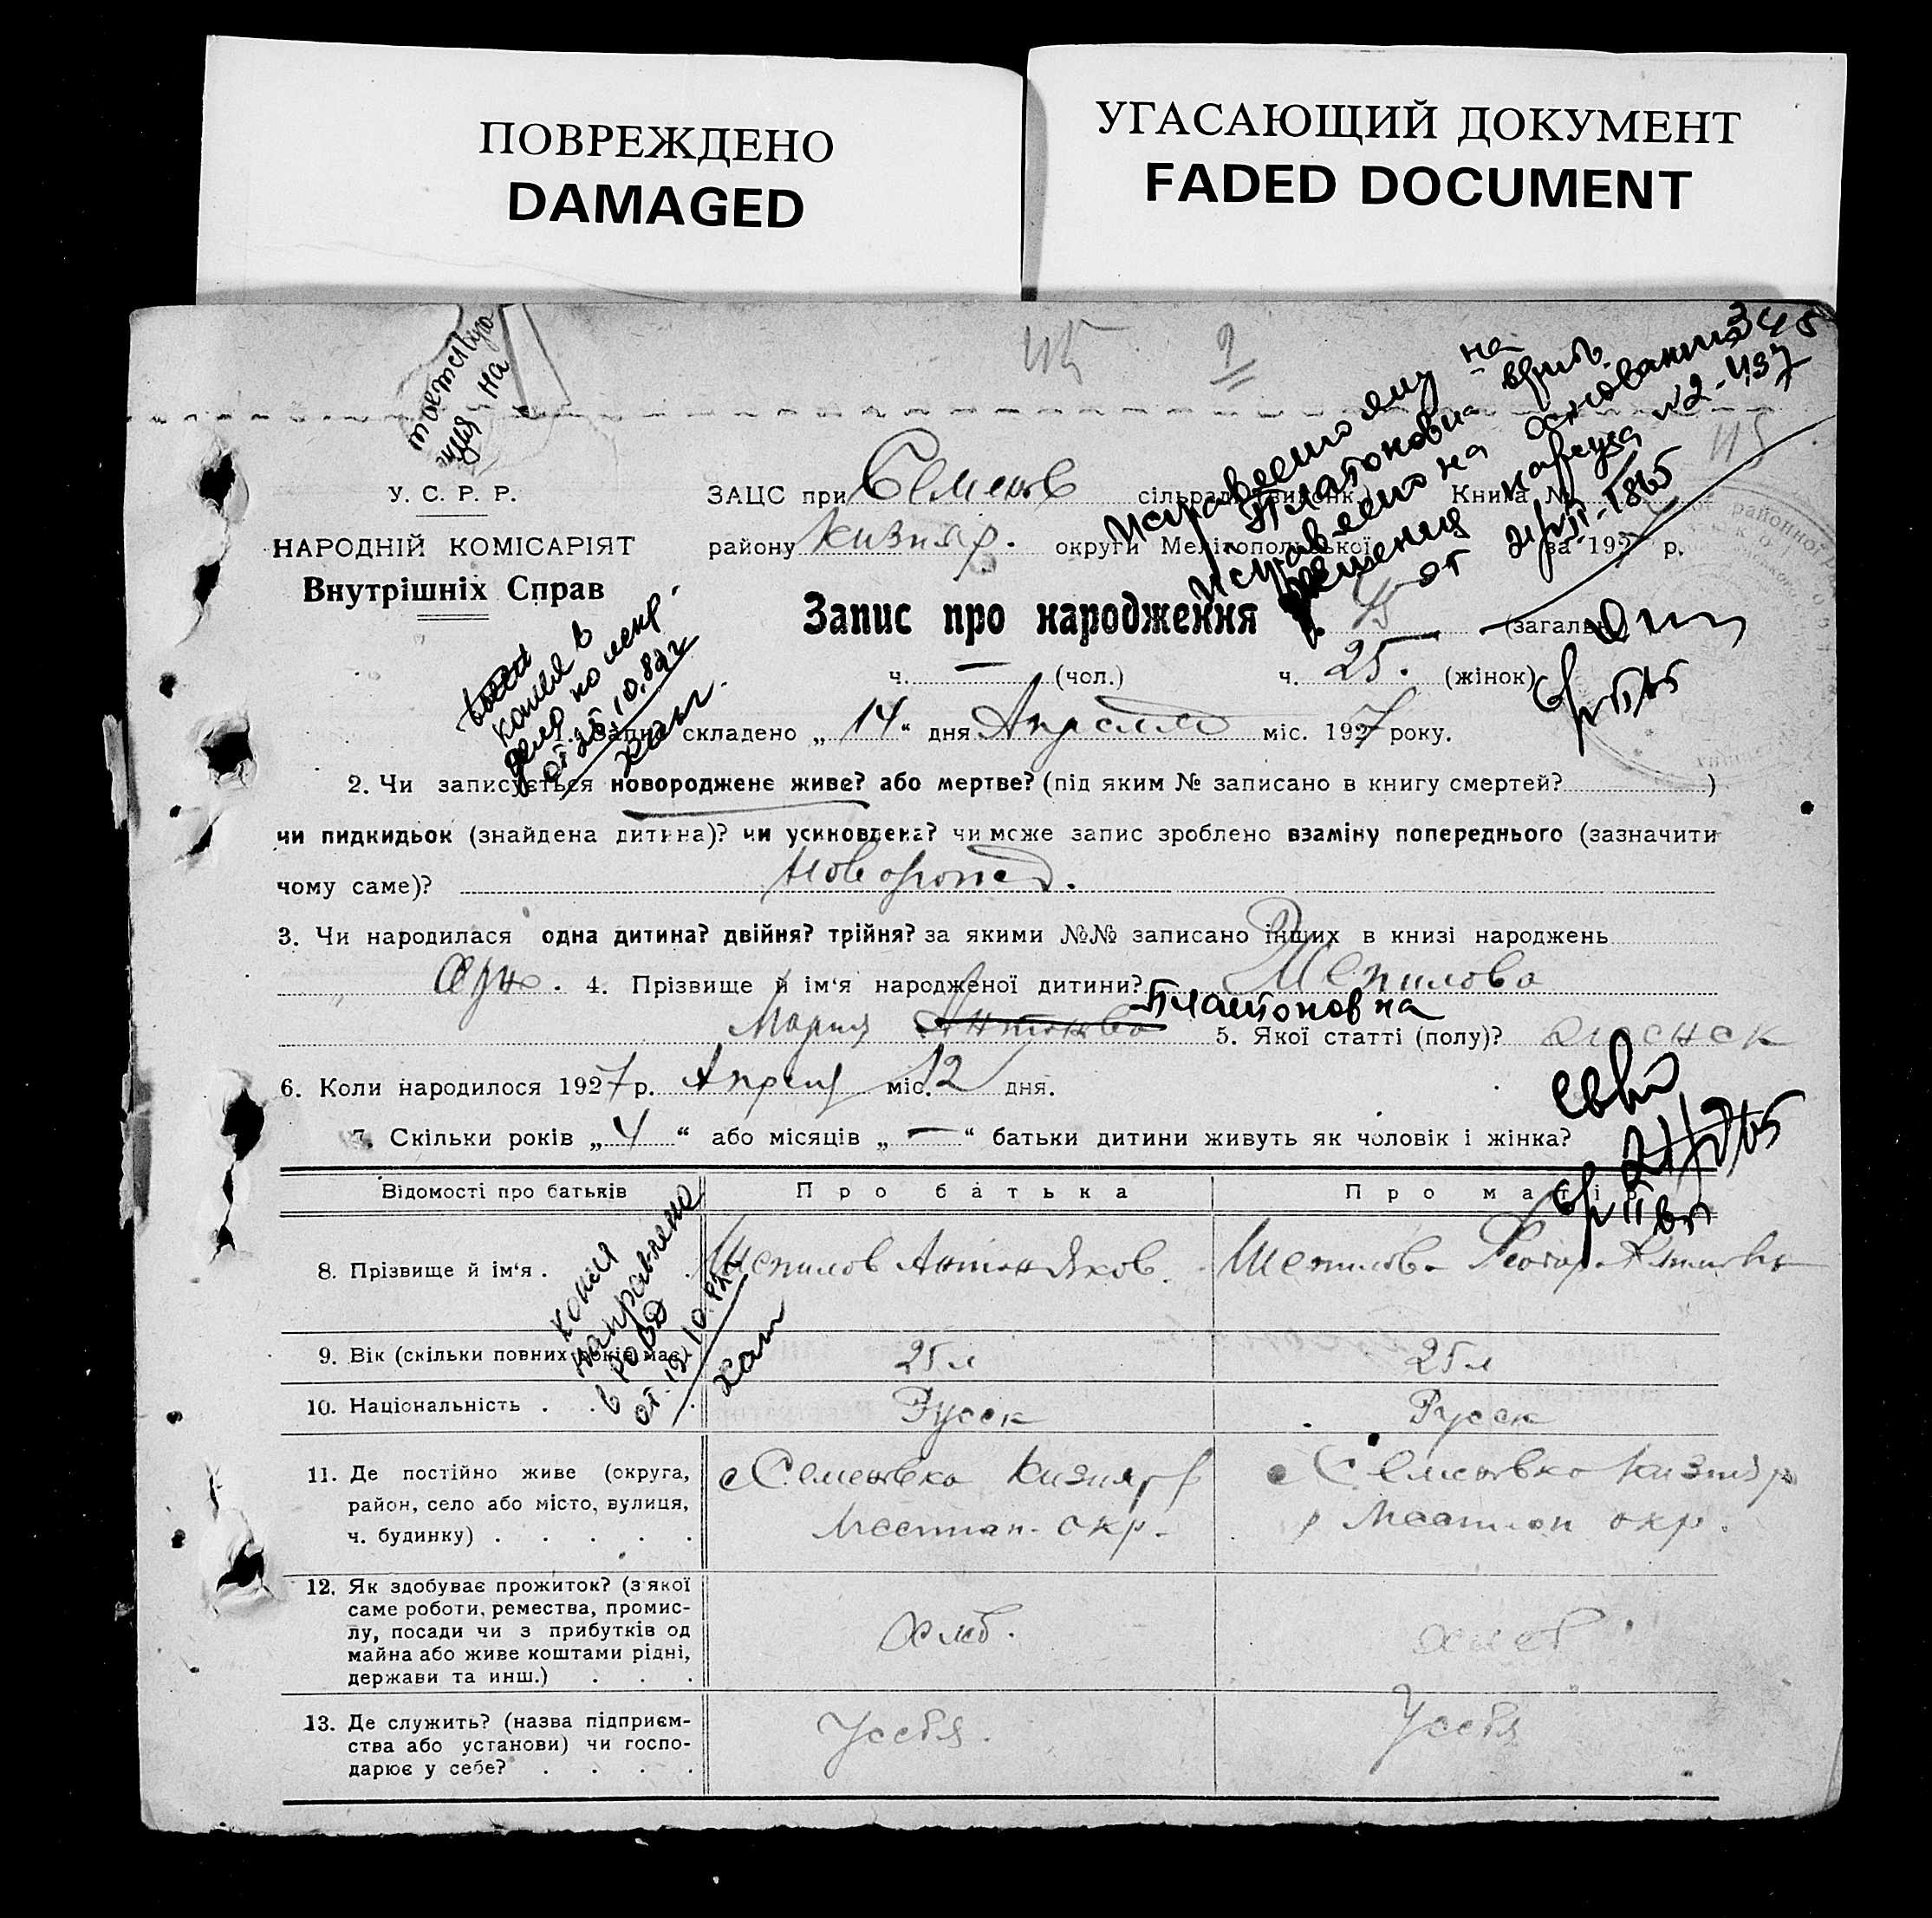 ПОВРЕЖДЕНО
DAMAGED
УГАСАЮЩИЙ ДОКУМЕНТ
FADED DOCUMENT
345
115
на
Исправлено
Платоновна
Исправлено на основании
решения нарсуда №2-437
от
У. С. Р. Р.
НАРОДНІЙ КОМІСАРІЯТ
Внутрішніх Справ
ЗАЦС при Семенов сільраді (виконк.) Книга №
району Кизияр. округи Мелітопольської за 1927 р.
Запис про народження Ч. 45 (загальн.)
ч. — (чол.) ч. 25. (жінок)
копия в
дело по
от 25.10.82г
1. Запис складено „14“ дня Апреля міс. 1927 року.
2. Чи записується новороджене живе? або мертве? (під яким № записано в книгу смертей? )
чи пидкидьок (знайдена дитина)? чи усиновлена? чи може запис зроблено взаміну попереднього (зазначити
чому саме)? Поворожд.
3. Чи народилася одна дитина? двійня? трійня? за якими №№ записано інших в книзі народжень
Одно. 4. Прізвище й ім'я народженої дитини? Шепилова
Мария Антонова Платоновна 5. Якої статті (полу)? женск
6. Коли народилося 1927 р. Апреля міс. 12 дня.
7. Скільки років „4“ або місяців „—“ батьки дитини живуть як чоловік і жінка?
Відомості про батьків Про батька Про матір
8. Прізвище й ім'я . Шепилов Антон Яков. Шепилова
копия
направлена
в РОВД
от 12.10.82г
9. Вік (скільки повних років має) 25 л 25 л
10. Національність . . Русск Русск
11. Де постійно живе (округа,
район, село або місто, вулиця,
ч. будинку) . . . . .
с Семеновка Кизияр р
Мелитоп. окр.
с Семеновка Кизияр
р Мелитоп окр.
12. Як здобуває прожиток? (з якої
саме роботи, ремества, промис-
лу, посади чи з прибутків од
майна або живе коштами рідні,
держави та инш.) . . .
Хлеб.
хлеб
13. Де служить? (назва підприєм-
ства або установи) чи госпо-
дарює у себе? . . . .
У себя.
У себя